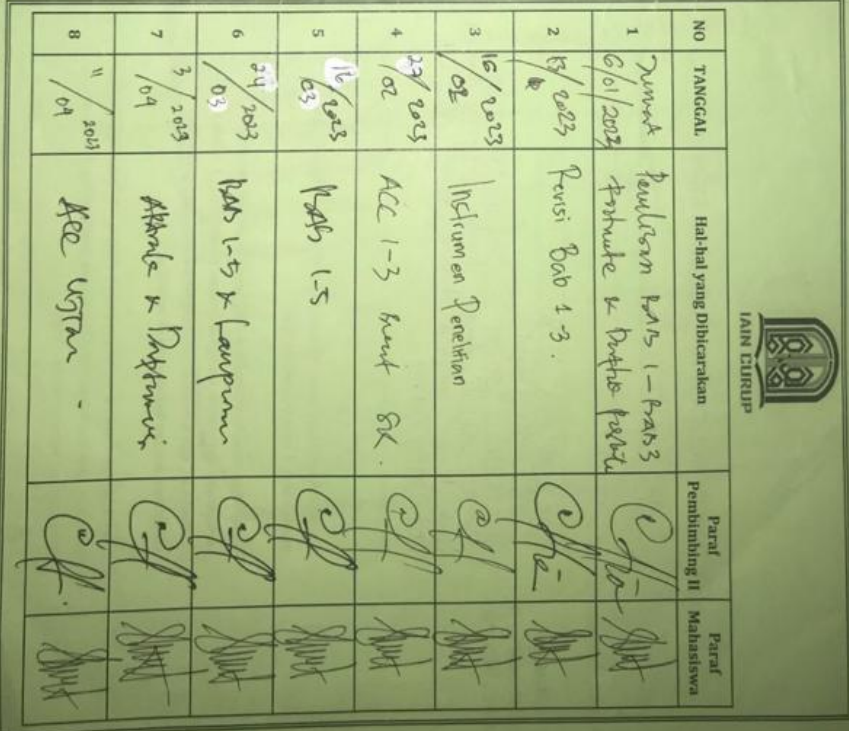 IAIN CURUP
NO TANGGAL Hal-hal yang Dibicarakan Paraf Pembimbing II Paraf Mahasiswa
1 Jumat 6/01/2023 Penulisan BAB 1 - BAB 3
2 2023 Revisi Bab 1-3.
3 16/02 2023 Instrumen Penelitian
4 27/02 2023 ACC 1-3 SK.
5 16/03 2023 BAB 1-5
6 24/03 2023 BAB 1-5 & Lampiran
7 3/04 2023 Abstrak &
8 11/04 2023 Acc Ujian